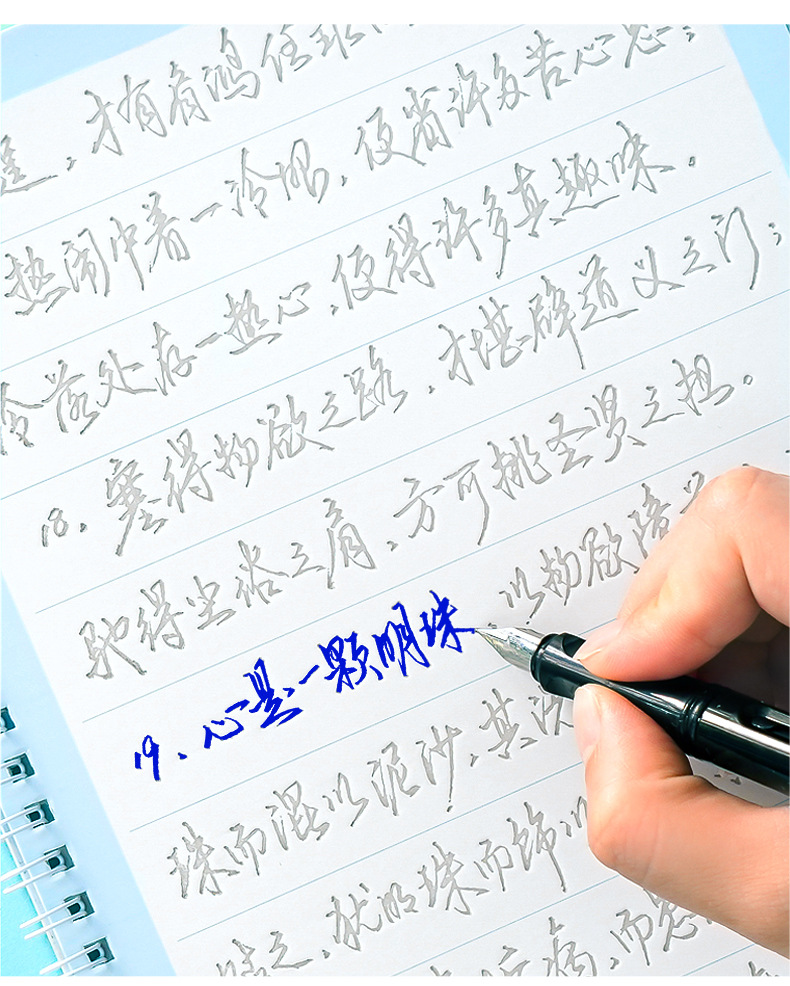 才有肩鸿任
热闹中着一冷眼,便省许多苦心思;
冷落处存一热心,便得许多真趣味.
18.塞得物欲之路,才堪辟道义之门;
驰得尘俗之肩,方可挑圣贤之担。
19.心是一颗明珠.以物欲障
珠而混以泥沙,其
犹明珠而饰以
之,病,而